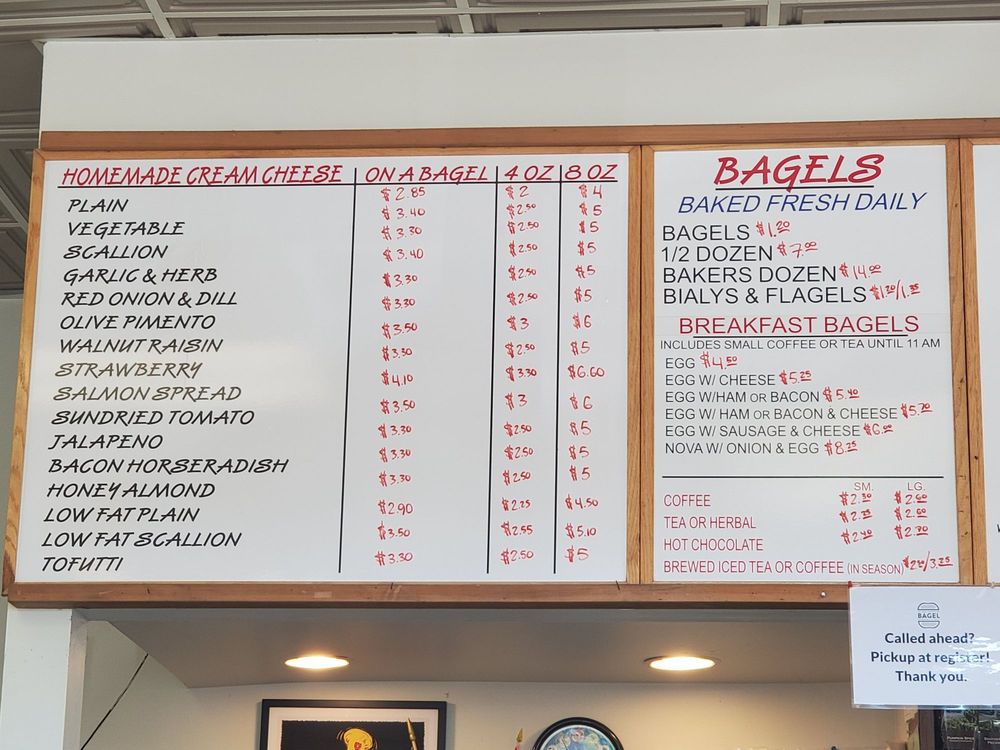 HOMEMADE CREAM CHEESE ON A BAGEL 4 OZ 8 OZ
PLAIN $2.85 $2 $4
VEGETABLE $3.40 $2.50 $5
SCALLION $3.30 $2.50 $5
GARLIC & HERB $3.40 $2.50 $5
RED ONION & DILL $3.30 $2.50 $5
OLIVE PIMENTO $3.30 $2.50 $5
WALNUT RAISIN $3.50 $3 $6
STRAWBERRY $3.30 $2.50 $5
SALMON SPREAD $4.10 $3.30 $6.60
SUNDRIED TOMATO $3.50 $3 $6
JALAPENO $3.30 $2.50 $5
BACON HORSERADISH $3.30 $2.50 $5
HONEY ALMOND $3.30 $2.50 $5
LOW FAT PLAIN $2.90 $2.25 $4.50
LOW FAT SCALLION $3.50 $2.55 $5.10
TOFUTTI $3.30 $2.50 $5
BAGELS
BAKED FRESH DAILY
BAGELS $1.20
1/2 DOZEN $7.00
BAKERS DOZEN $14.00
BIALYS & FLAGELS $1.20/1.35
BREAKFAST BAGELS
INCLUDES SMALL COFFEE OR TEA UNTIL 11 AM
EGG $4.50
EGG W/ CHEESE $5.25
EGG W/HAM OR BACON $5.40
EGG W/ HAM OR BACON & CHEESE $5.70
EGG W/ SAUSAGE & CHEESE $6.00
NOVA W/ ONION & EGG $8.25
SM. LG.
COFFEE $2.30 $2.60
TEA OR HERBAL $2.35 $2.60
HOT CHOCOLATE $2.40 $2.70
BREWED ICED TEA OR COFFEE (IN SEASON)
BAGEL
Called ahead?
Pickup at register!
Thank you.